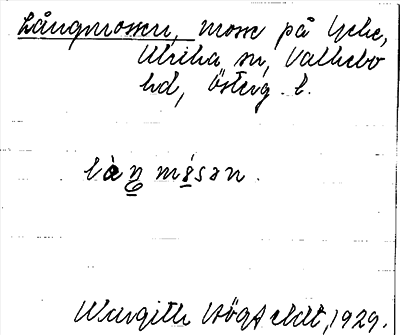 Långmossen, mosse på Lycke,
Ulrika sn, Valkebo
hd, Österg. l.
làn mòsən.
Margith Högfeldt, 1929.